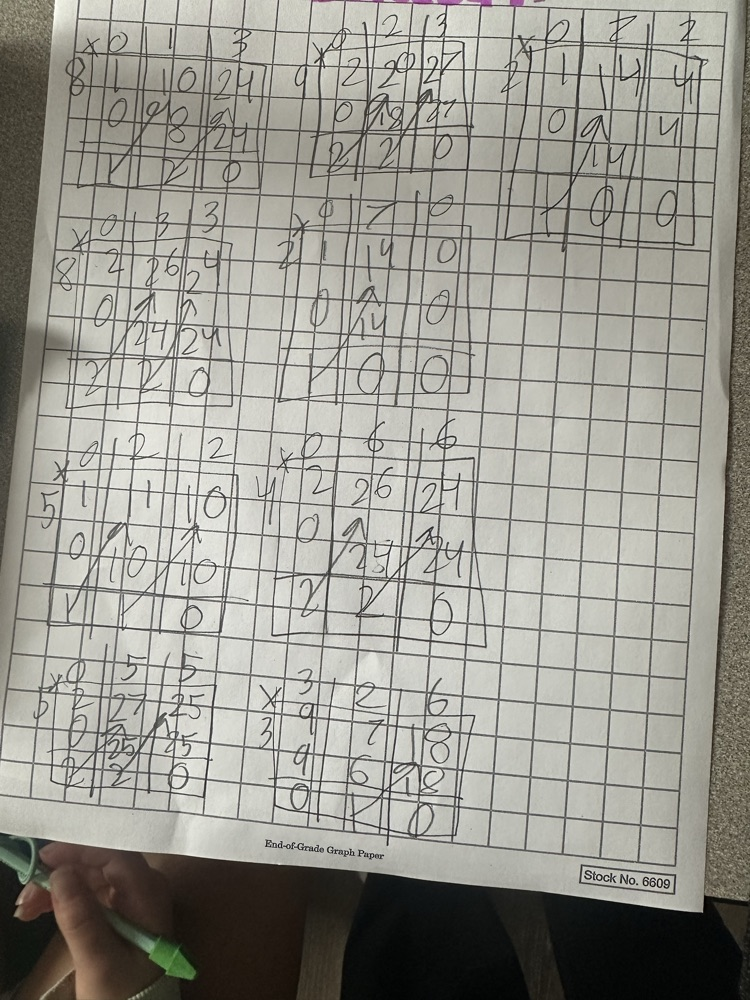 x 0 1 3
8 1 10 24
0 8 24
1 2 0
x 0 2 3
9 2 29 27
0 18 27
2 2 0
x 0 7 2
2 1 14 4
0 14 4
1 0 0
x 0 3 3
8 2 26 24
0 24 24
2 2 0
x 0 7 0
2 1 14 0
0 14 0
1 0 0
x 0 2 2
5 1 1 10
0 10 10
1 1 0
x 0 6 6
4 2 26 24
0 24 24
2 2 0
x 0 5 5
5 2 27 25
0 25 25
2 2 0
x 3 2 6
3 9 7 18
9 6 18
0 1 0
End-of-Grade Graph Paper
Stock No. 6609